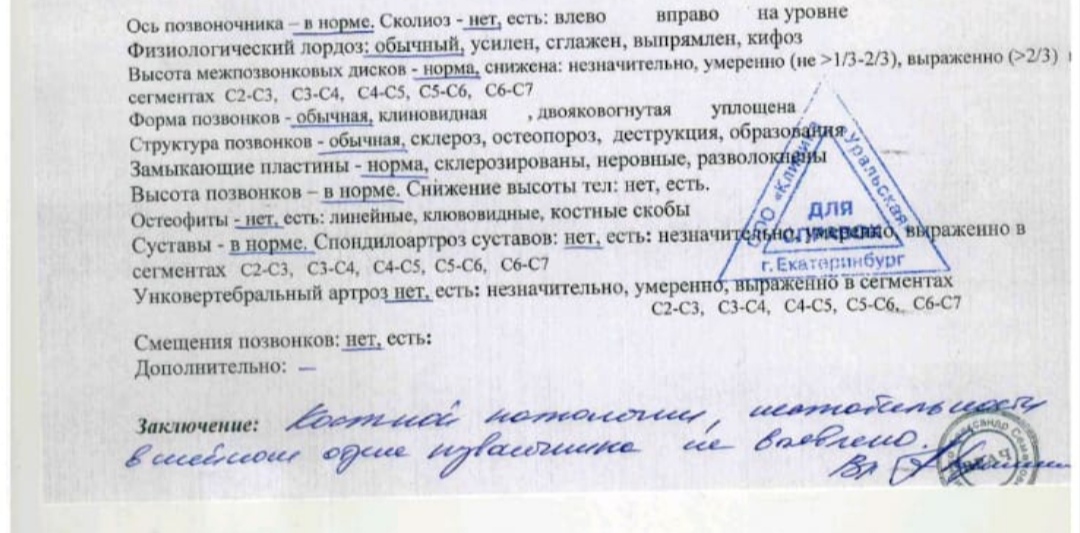 Ось позвоночника – в норме. Сколиоз - нет, есть: влево вправо на уровне
Физиологический лордоз: обычный, усилен, сглажен, выпрямлен, кифоз
Высота межпозвонковых дисков - норма, снижена: незначительно, умеренно (не >1/3-2/3), выраженно (>2/3)
сегментах С2-С3, С3-С4, С4-С5, С5-С6, С6-С7
Форма позвонков - обычная, клиновидная , двояковогнутая уплощена
Структура позвонков - обычная, склероз, остеопороз, деструкция, образования
Замыкающие пластины - норма, склерозированы, неровные, разволокнены
Высота позвонков – в норме. Снижение высоты тел: нет, есть.
Остеофиты - нет, есть: линейные, клювовидные, костные скобы
Суставы - в норме. Спондилоартроз суставов: нет, есть: незначительно, умеренно, выраженно в
сегментах С2-С3, С3-С4, С4-С5, С5-С6, С6-С7
Унковертебральный артроз нет, есть: незначительно, умеренно, выраженно в сегментах
С2-С3, С3-С4, С4-С5, С5-С6, С6-С7
Смещения позвонков: нет, есть:
Дополнительно: –
Заключение: Костной патологии, нестабильности
в шейном отделе позвоночника не выявлено.
Вр
ООО «Клиника Уральская»
ДЛЯ
СПРАВОК
г. Екатеринбург
ВРАЧ